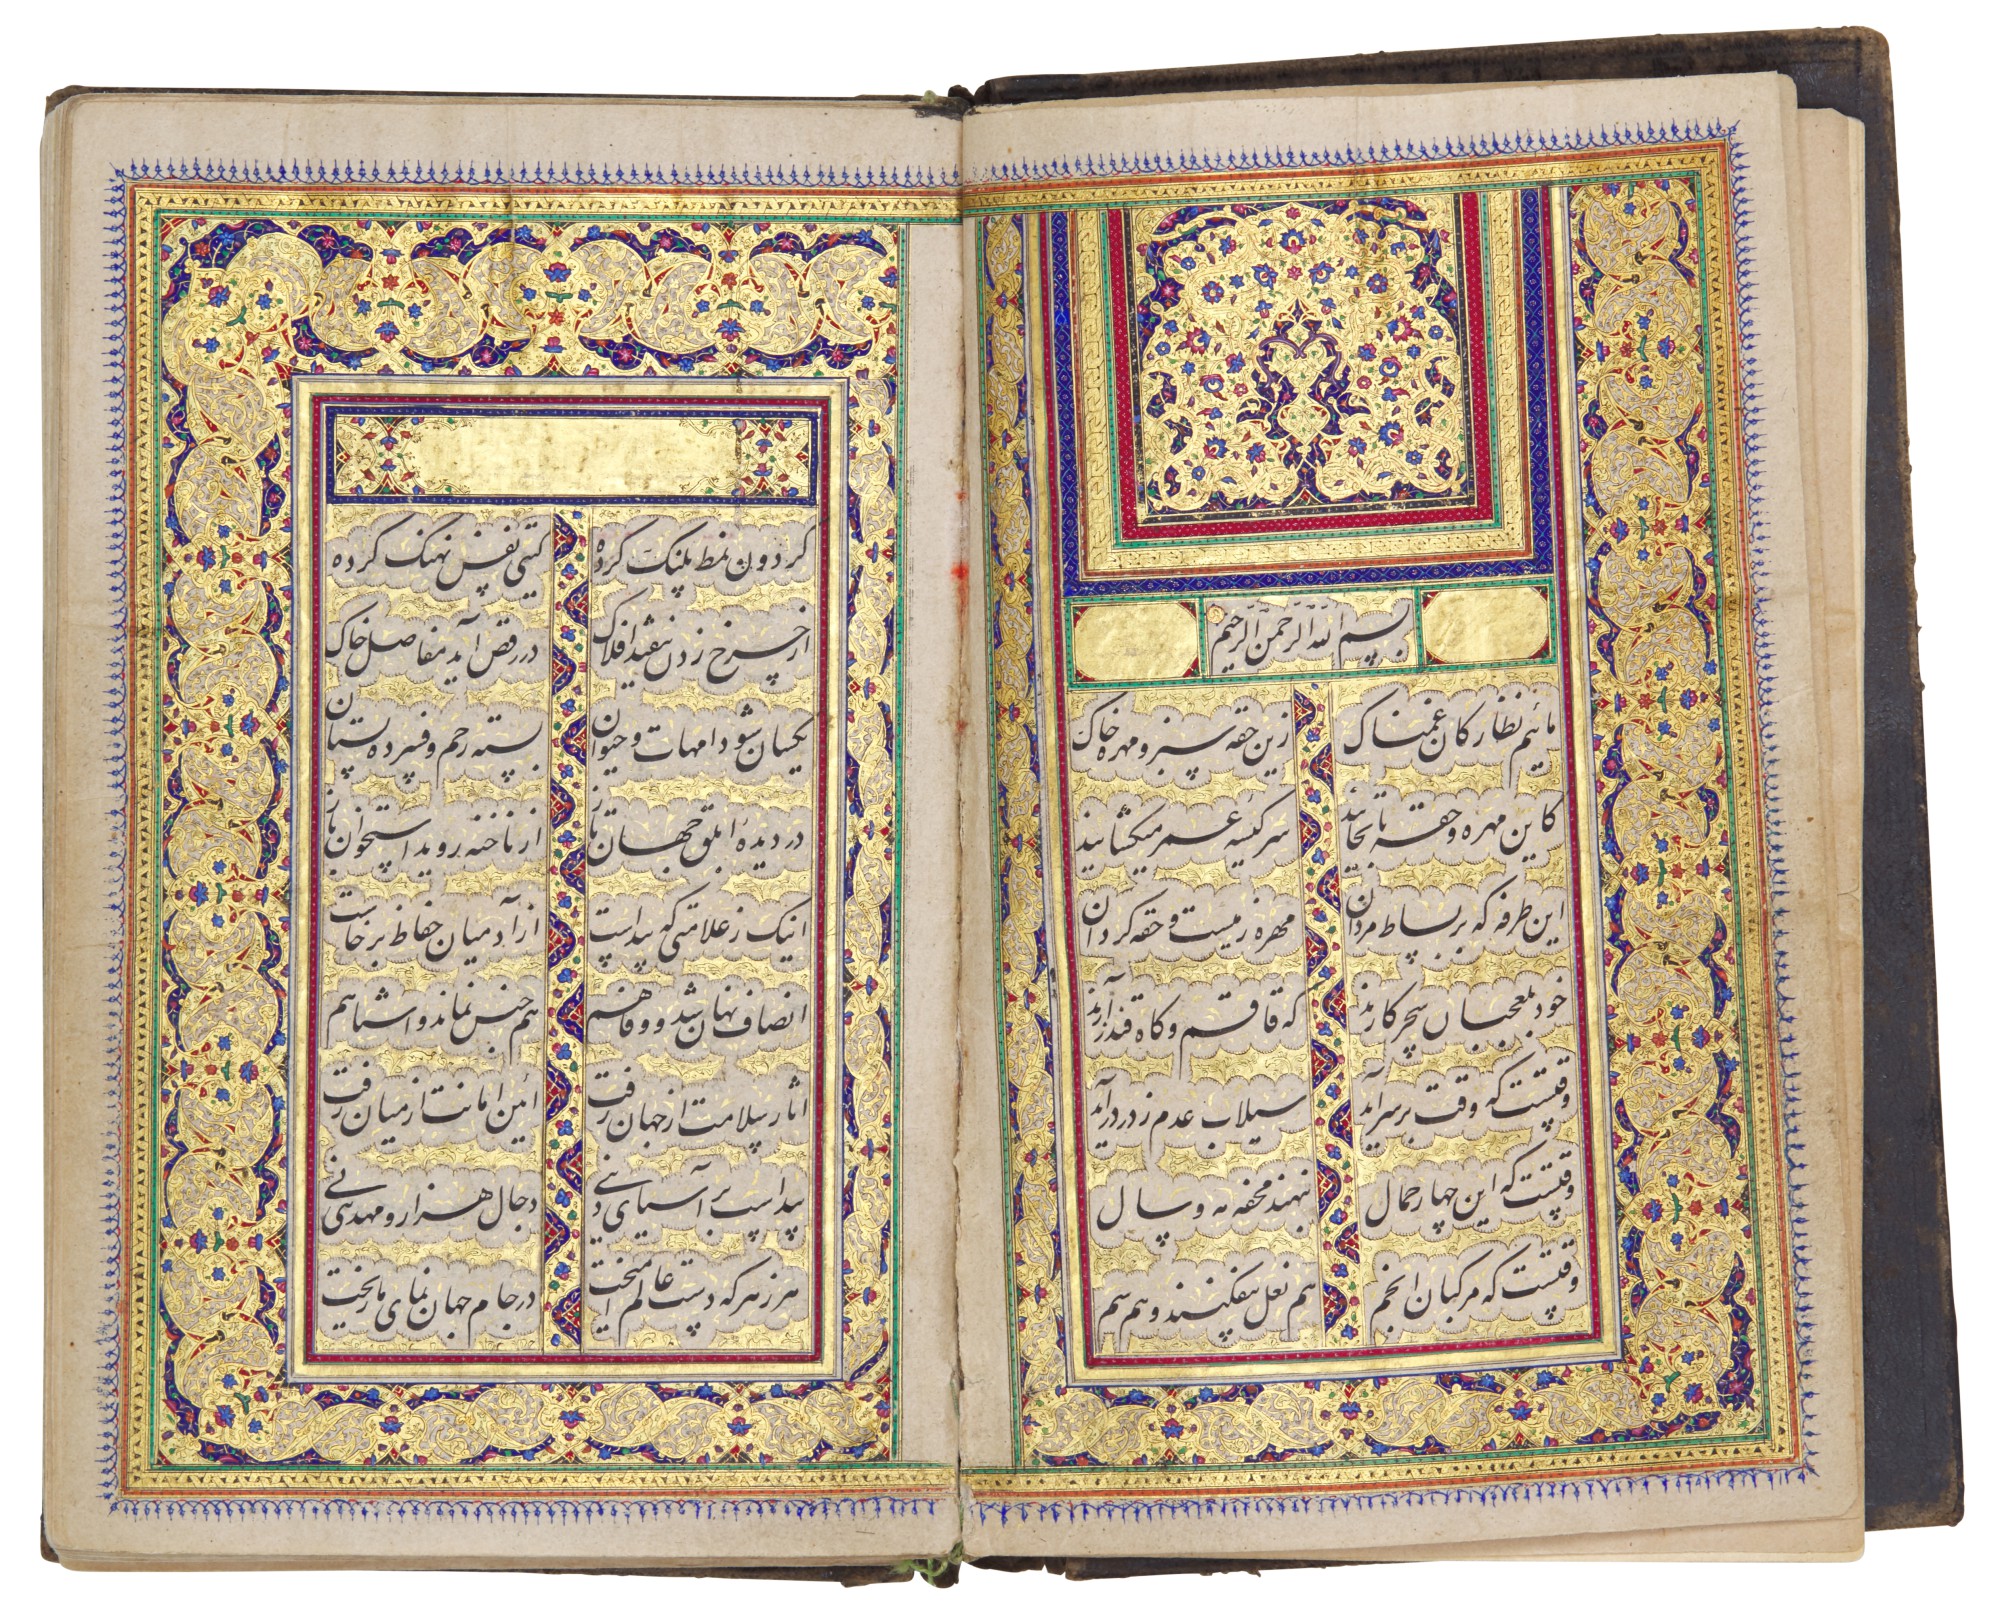 بسم الله الرحمن الرحیم
مائیم نظارکان غمناک زین حقه سبز و مهره خاک
کاین مهره و حقه تا بجایند سر کیسه عمر میکشایند
این طرفه که بر بساط مردان مهره زمیست و حقه کردان
خود بلعجبان سحر کارند که قاقم و کاه قندز آرند
وقتست که وقت بر سر آید سیلاب عدم ز در درآید
وقتست که این چهار حمال بنهند محفه مه و سال
وقتست که مرکبان انجم هم نعل بیفکنند و هم سم
کردون نمط پلنک کرده کیتی نفس نهنک کرده
از چرخ زدن بیفتد افلاک در رقص آید مفاصل خاک
یکسان شود امهات و حیوان بسته رحم و فسرده پستان
در دیده ابلق جهان تاز از ناخنه روید استخوان باز
اینک ز علامتی که پیداست از آدمیان حفاظ برخاست
انصاف نهان شد و وفا هم هم جنس نماند و آشنا هم
آثار سلامت از جهان رفت آئین امانت از میان رفت
پیداست بر آسیای دنی دجال هزار و مهدئی نی
هر زهر که دست عالم آمیخت در جام جهان نمای ما ریخت